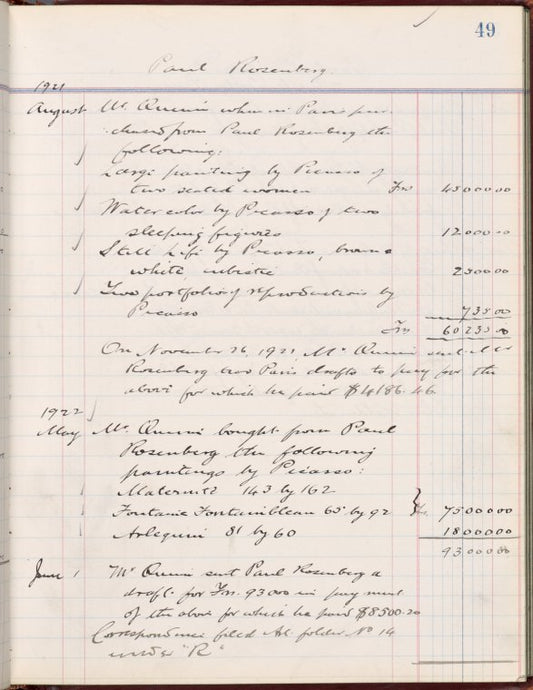 49
Paul Rosenberg.
1921
August Mr Quinn when in Paris pur-
chased from Paul Rosenberg the
following:
Large painting by Picasso of
two seated women Frs 45000 00
Water color by Picasso of two
sleeping figures 12000 00
Still Life by Picasso, brown
white, cubistic 2500 00
Two portfolios of reproductions by
Picasso 735 00
Frs 60235 00
On November 26, 1921, Mr Quinn sent Mr
Rosenberg two Paris drafts to pay for the
above for which he paid $4186.46.
1922
May Mr. Quinn bought from Paul
Rosenberg the following
paintings by Picasso:
Maternité 143 by 162
Fontaine Fontainbleau 65 by 92 } Frs. 75000 00
Arlequin 81 by 60 18000 00
93000 00
June 1 Mr Quinn sent Paul Rosenberg a
draft for Frs. 93000 in payment
of the above for which he paid $8500.20
Correspondence filed Art folder No 14
under "R"